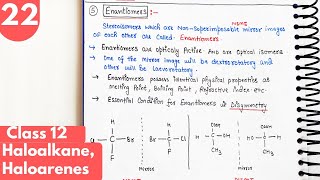 22
Class 12
Haloalkane,
Haloarenes
⑤ Enantiomers :-
NSIMS
Stereoisomers which are Non-Superimposible mirror images
of each other are Called Enantiomers.
→ Enantiomers are optically Active and are Optical isomers
→ One of the mirror image will be dextrorotatory and
other will be laevorotatory.
→ Enantiomers possess identical physical properties as
melting Point, Boiling Point, Refractive index etc.
→ Essential Condition for Enantiomers is Disymmetry
H
Cl
C
Br
F
H
Br
C
Cl
F
mirror
CH₃
C
H
OH
COOH
mirror